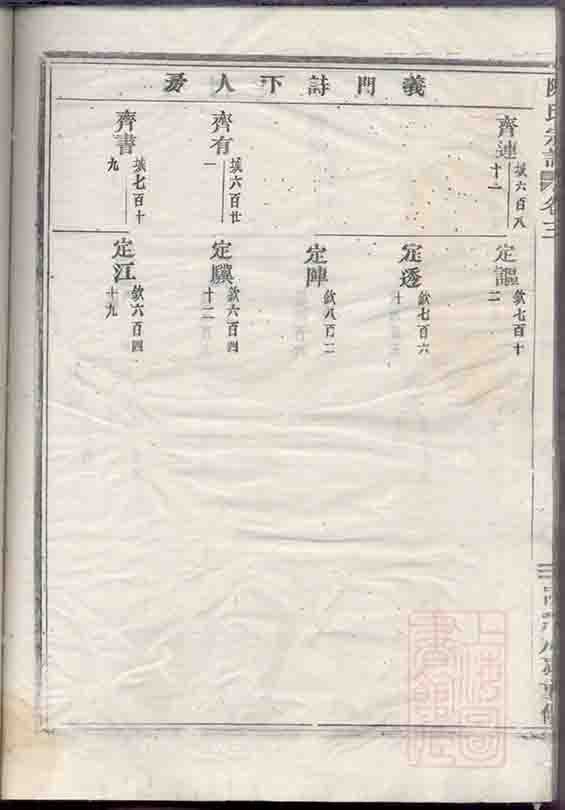 義門詩下人
齊連
城六百八
十一
齊有
城六百廿
一
齊書
城七百十
九
定謳
欽七百十
二
定透
欽七百六
十
定陣
欽八百二
定驥
欽六百四
十二
定江
欽六百四
十九
陳氏宗譜
卷三
上海圖書館藏